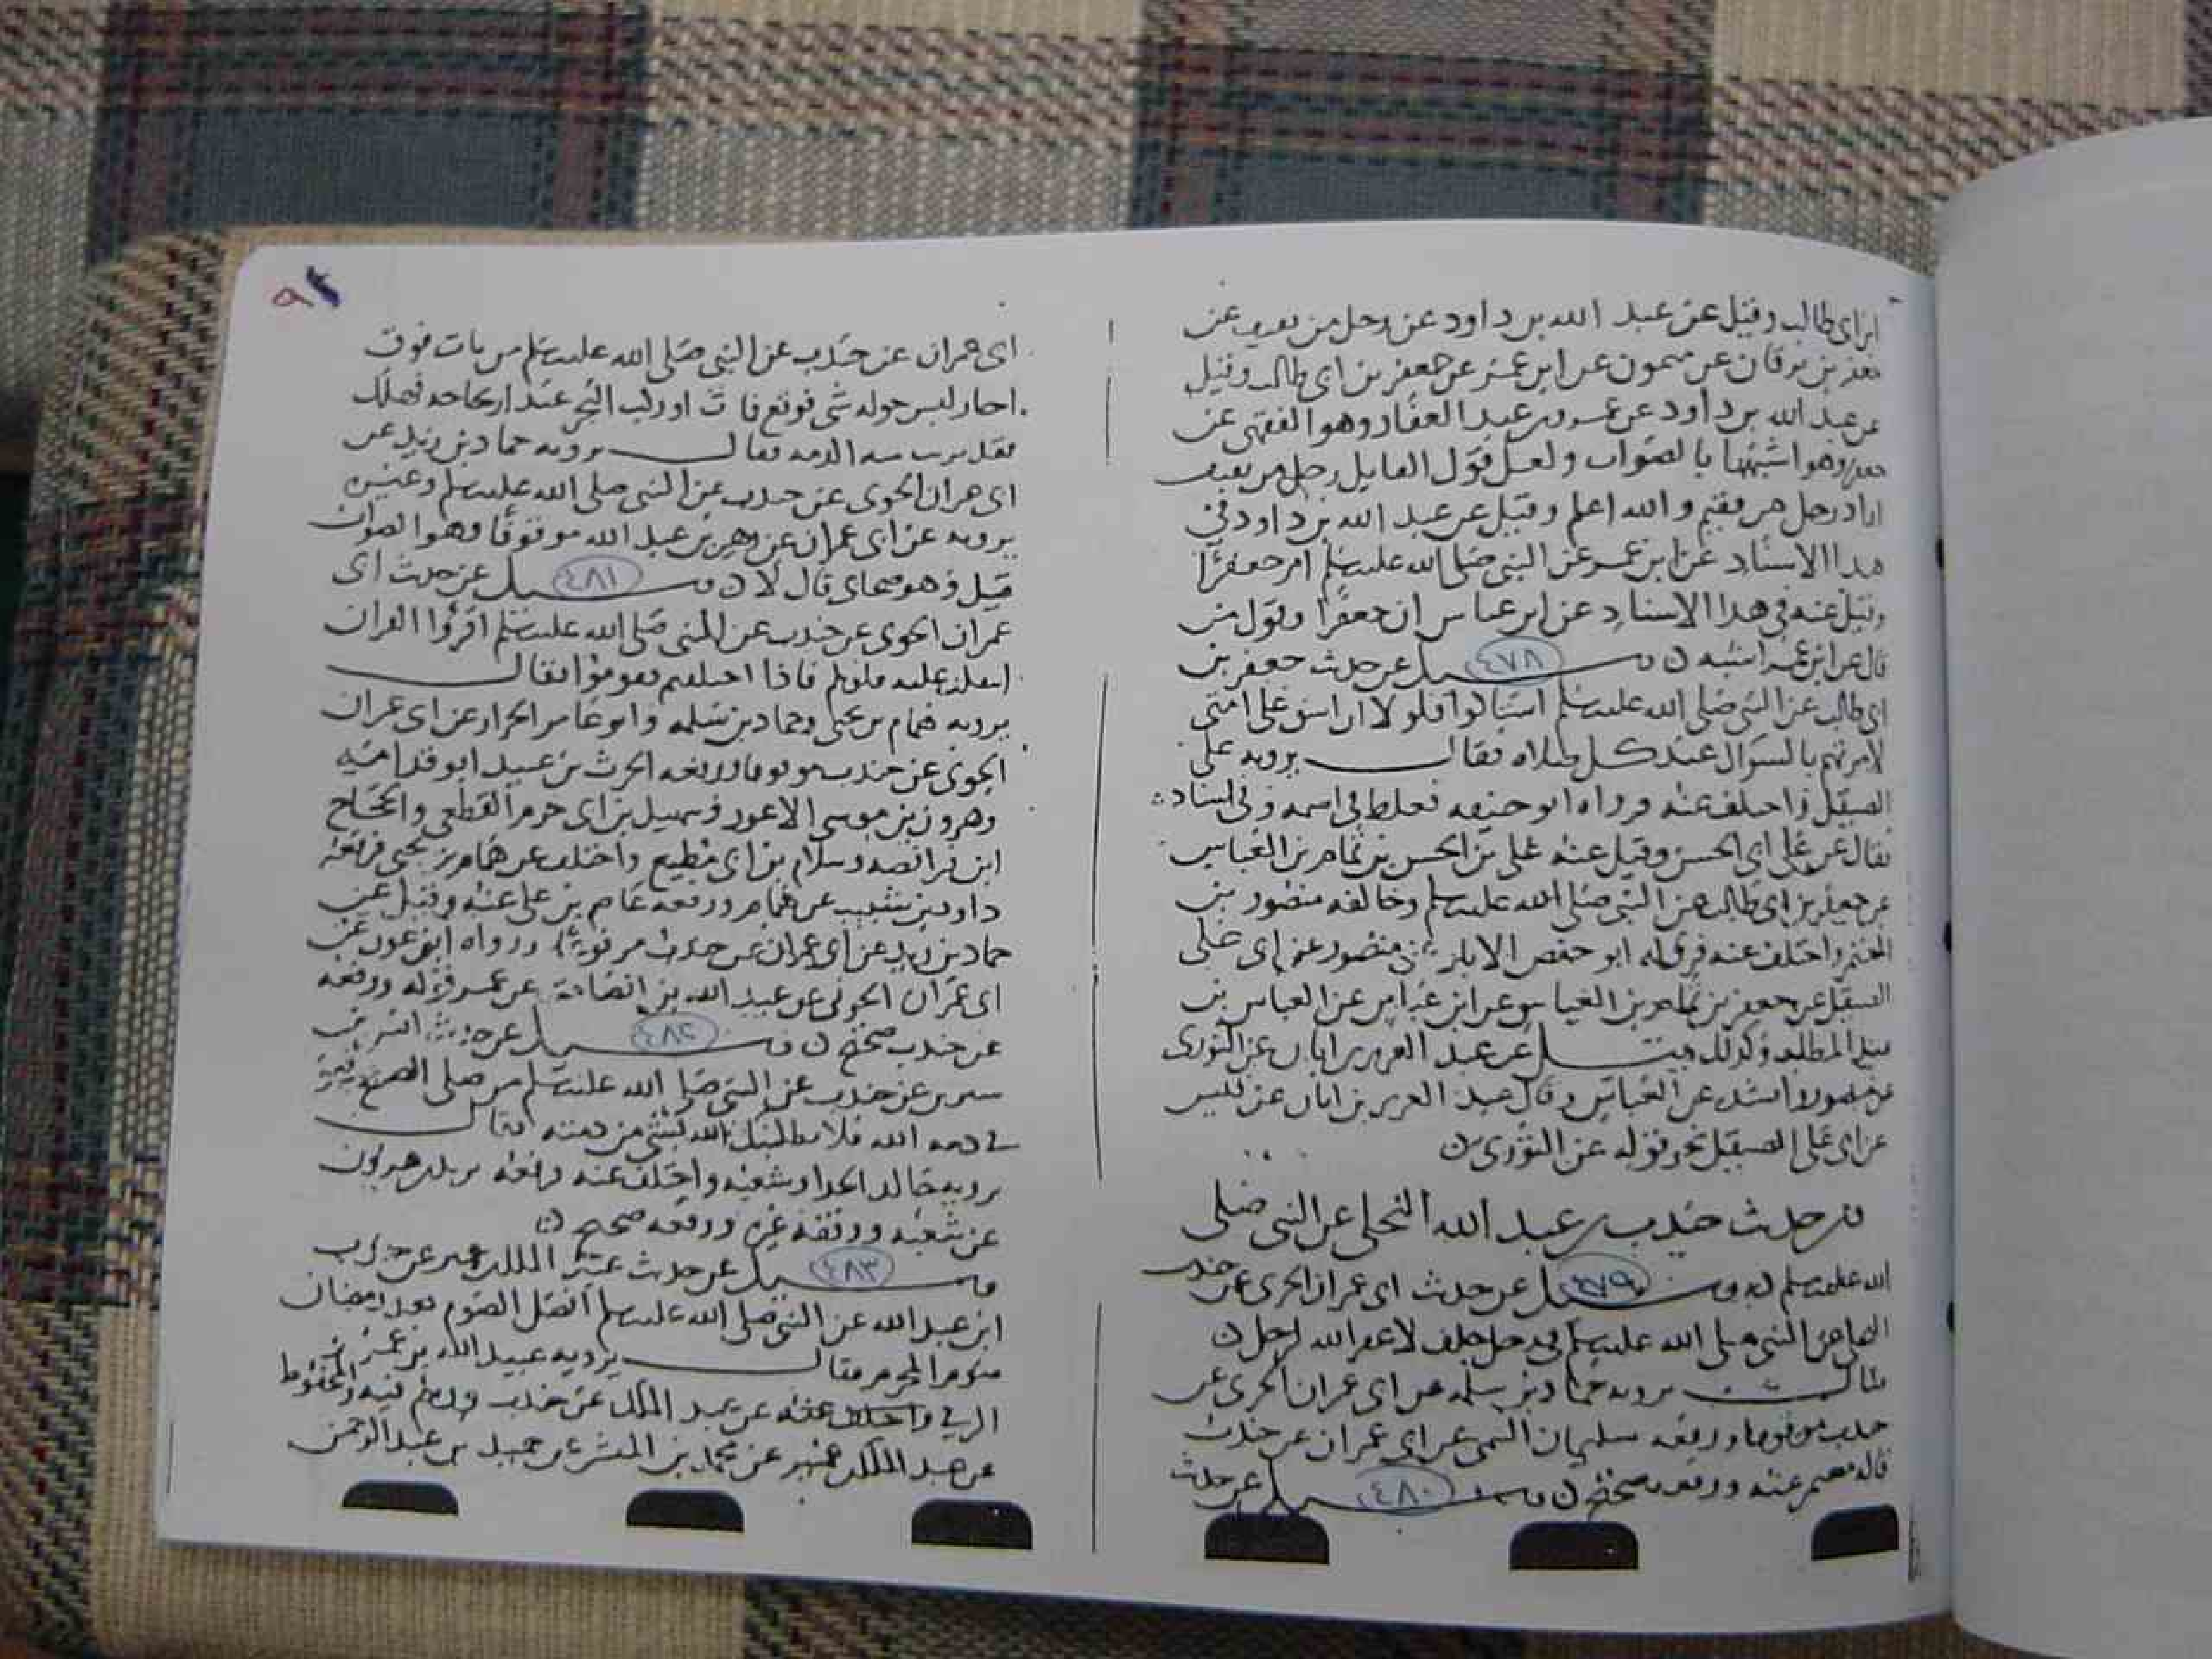 ابن ابى طالب وقيل عن عبد الله بن داود عن رجل من ثقيف عن
جعفر بن برقان عن ميمون عن ابن عمر عن جعفر بن ابى طالب وقيل
عن عبد الله بن داود عن عمر بن عبد الغفار وهو الفقيمى عن
جعفر وهو اشبهها بالصواب ولعل قول القايل رجل من ثقيف
اراد رجل من فقيم والله اعلم وقيل عن عبد الله بن داود فى
هذا الاسناد عن ابن عمر عن النبى صلى الله عليه وسلم امر جعفرا
وقيل عنه فى هذا الاسناد عن ابن عباس ان جعفرا وقول من
قال عن ابن عمر اشبه ن وسيل ٤٧٨ عن حديث جعفر بن
ابى طالب عن النبى صلى الله عليه وسلم استاكوا فلولا ان اشق على امتى
لامرتهم بالسواك عند كل صلاه فقال يرويه على
الصيقل واختلف عنه فرواه ابو حنيفه فغلط فى اسمه وفى اسناده
فقال عن على ابى الحسن وقيل عنه على بن الحسن بن تمام بن العباس
عن جعفر بن ابى طالب عن النبى صلى الله عليه وسلم وخالفه منصور بن
المعتمر واختلف عنه فرواه ابو حفص الابار عن منصور عن ابى على
الصيقل عن جعفر بن تمام بن العباس عن ابن عباس عن العباس بن
عبد المطلب وكذلك قيل عن عبد العزيز بن ابان عن الثورى
عن منصور اسنده عن العباس وقال عبد العزيز بن ابان عن قيس
عن ابى على الصيقل نحو قوله عن الثورى ن
من حديث جندب بن عبد الله البجلى عن النبى صلى
الله عليه وسلم ن وسيل ٤٧٩ عن حديث ابى عمران الجونى عن جندب
البجلى عن النبى صلى الله عليه وسلم فى رجل حلف لا غفر الله لرجل ن
فقال يرويه حماد بن سلمه عن ابى عمران الجونى عن
جندب موقوفا ورفعه سليمان التيمى عن ابى عمران عن جندب
قاله معتمر عنه ورفعه صحيح ن وسيل ٤٨٠ عن حديث
ابى عمران عن جندب عن النبى صلى الله عليه وسلم من بات فوق
اجار ليس حوله شى فوقع فمات او ركب البحر عند ارتجاجه فهلك
فقد برئت منه الذمه فقال يرويه حماد بن زيد عن
ابى عمران الجونى عن جندب عن النبى صلى الله عليه وسلم وغيره
يرويه عن ابى عمران عن زهير بن عبد الله موقوفا وهو الصواب
قيل وهو صحابى قال لا ن وسيل ٤٨١ عن حديث ابى
عمران الجونى عن جندب عن النبى صلى الله عليه وسلم اقرؤا القران
ما ائتلفت عليه قلوبكم فاذا اختلفتم فقوموا فقال
يرويه همام بن يحيى وحماد بن سلمه وابو عامر الخزاز عن ابى عمران
الجونى عن جندب موقوفا ورفعه الحرث بن عبيد ابو قدامه
وهرون بن موسى الاعور وسهيل بن ابى حزم القطعى والحجاج
ابن فرافصه وسلام بن ابى مطيع واختلف عن همام بن يحيى فرفعه
داود بن شبيب عن همام ورفعه عاصم بن على عنه وقيل عن
حماد بن زيد عن ابى عمران عن جندب مرفوعا ورواه ابن عون عن
ابى عمران الجونى عن عبد الله بن الصامت عن عمر قوله ورفعه
عن جندب صحيح ن وسيل ٤٨٢ عن حديث انس بن
سيرين عن جندب عن النبى صلى الله عليه وسلم من صلى الصبح فهو
فى ذمه الله فلا يطالبنك الله بشى من ذمته فقال
يرويه خالد الحذا وشعبه واختلف عنه رفعه يزيد بن هرون
عن شعبه ووقفه غيره ورفعه صحيح ن
وسيل ٤٨٣ عن حديث عبد الملك بن عمير عن جندب
ابن عبد الله عن النبى صلى الله عليه وسلم افضل الصوم بعد رمضان
صوم المحرم فقال يرويه عبيد الله بن عمرو
الرقى واختلف عنه عن عبد الملك عن جندب ووهم فيه والمحفوظ
عن عبد الملك بن عمير عن محمد بن المنتشر عن حميد بن عبد الرحمن